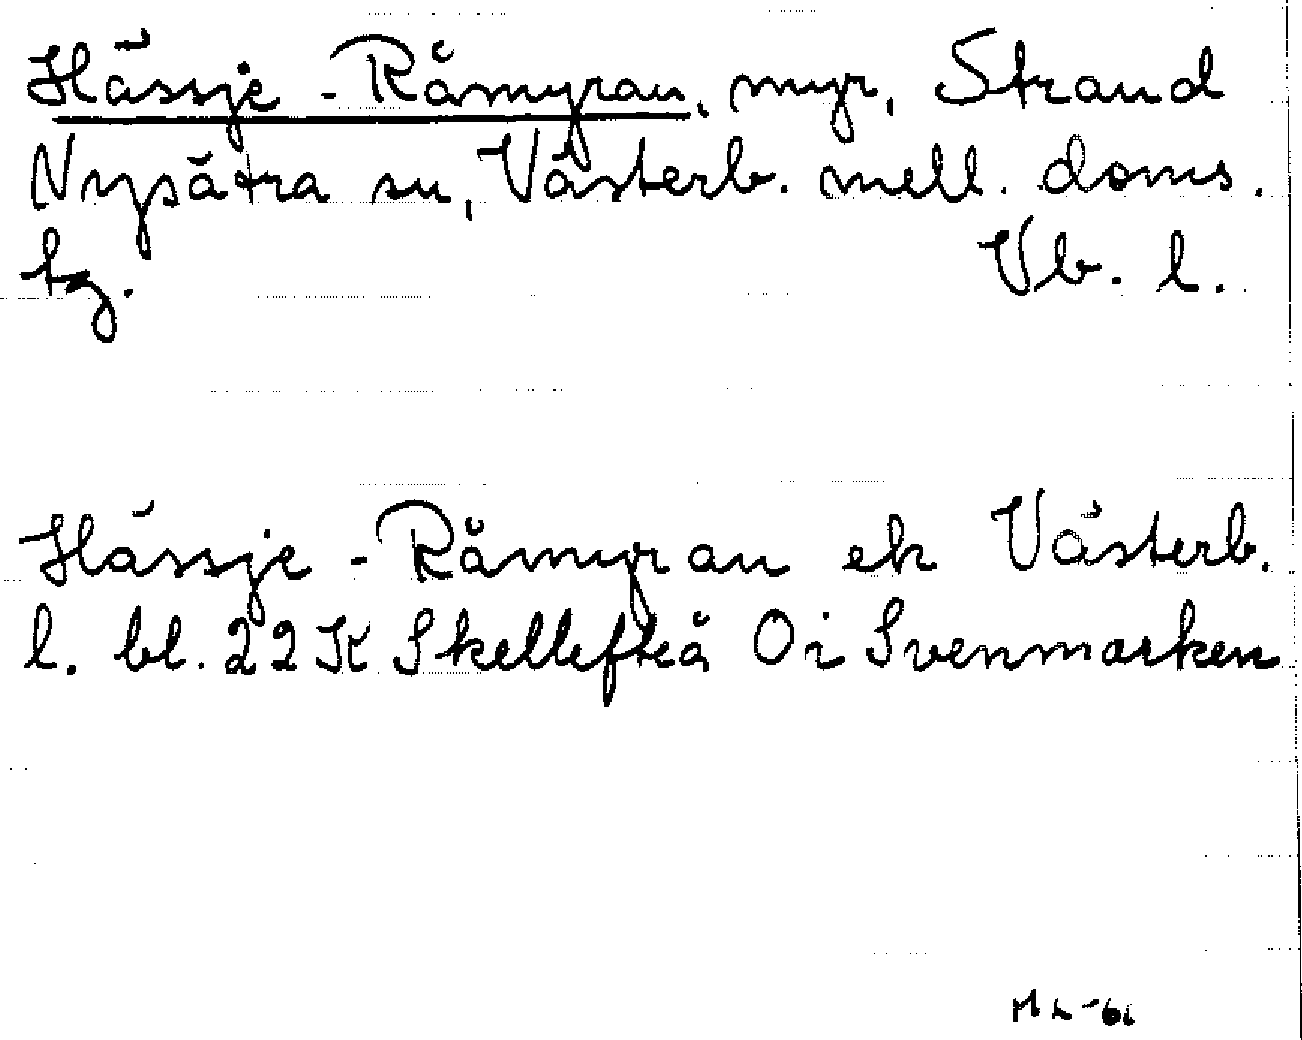 Hässje - Råmyran, myr, Strand
Nysätra sn, Västerb. mell. doms.
tg. Vb. l.
Hässje - Råmyran ek Västerb.
l. bl. 22 K Skellefteå Oi Svenmarken